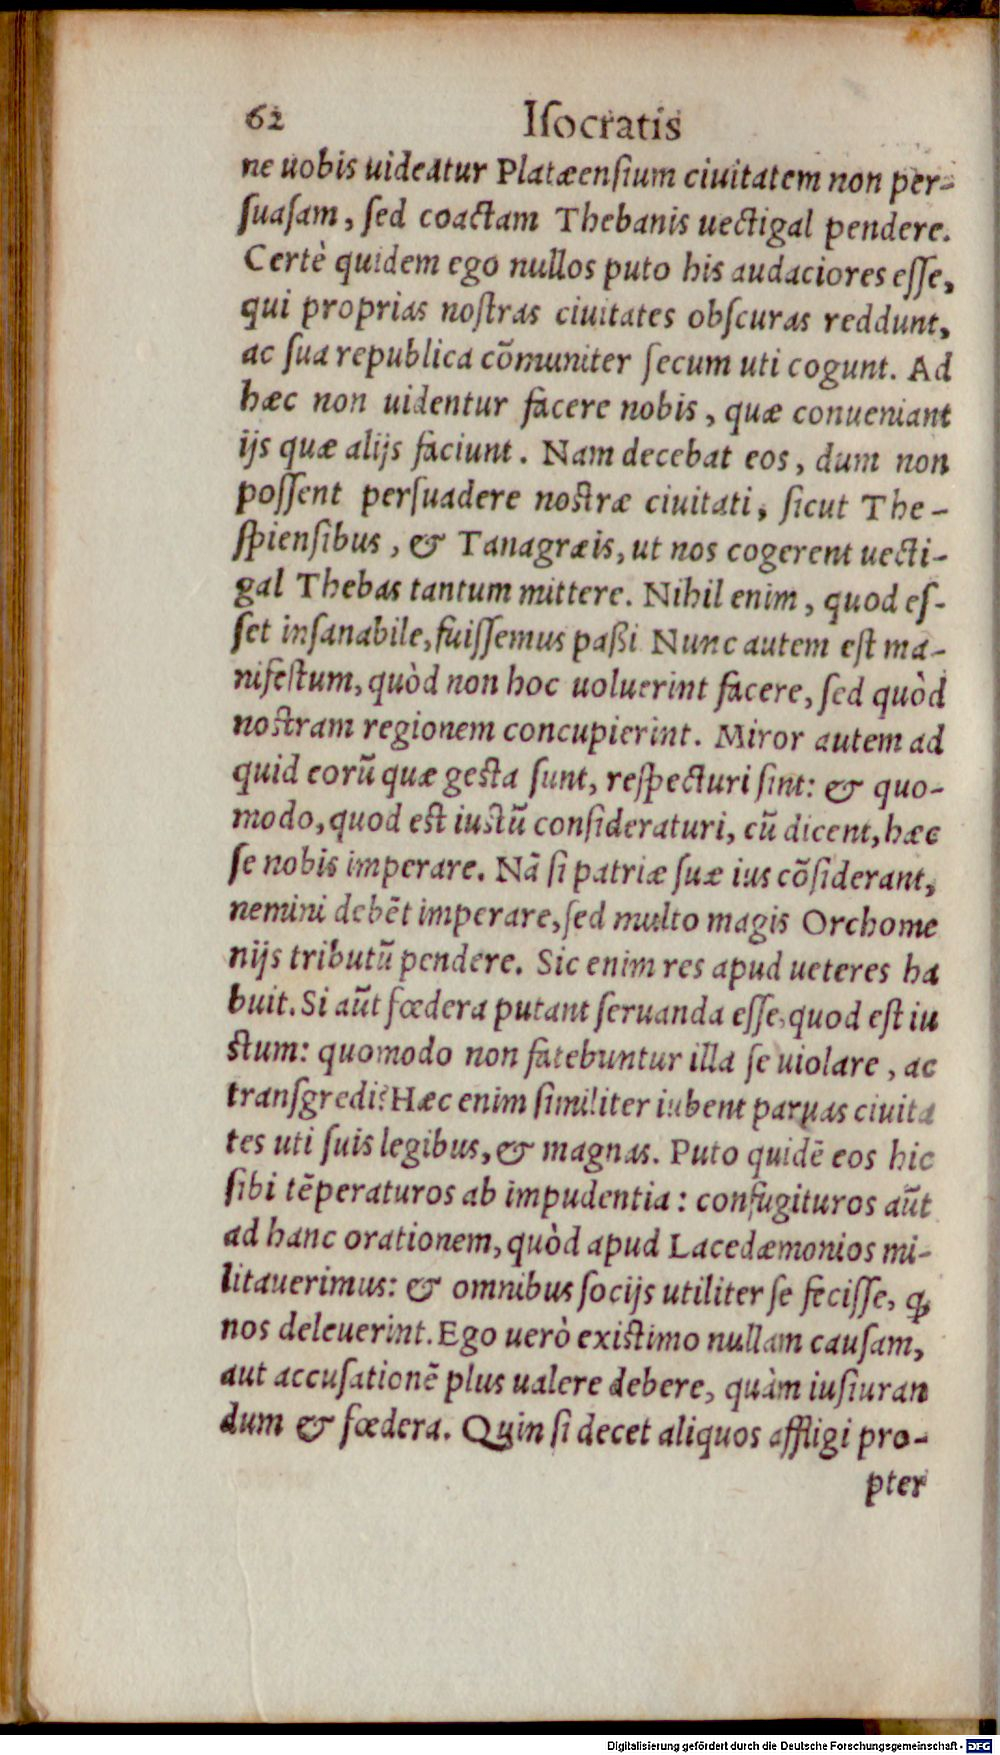 62 Iſocratis
ne uobis uideatur Platæenſium ciuitatem non per-
ſuaſam, ſed coactam Thebanis uectigal pendere.
Certè quidem ego nullos puto his audaciores eſſe,
qui proprias noſtras ciuitates obſcuras reddunt,
ac ſua republica cõmuniter ſecum uti cogunt. Ad
hæc non uidentur facere nobis, quæ conueniant
ijs quæ alijs faciunt. Nam decebat eos, dum non
poſſent perſuadere noſtræ ciuitati, ſicut The-
ſpienſibus, & Tanagræis, ut nos cogerent uecti-
gal Thebas tantum mittere. Nihil enim, quod eſ-
ſet inſanabile, fuiſſemus paßi Nunc autem eſt ma-
nifeſtum, quòd non hoc uoluerint facere, ſed quòd
noſtram regionem concupierint. Miror autem ad
quid eorũ quæ geſta ſunt, reſpecturi ſint: & quo-
modo, quod eſt iuſtũ conſideraturi, cũ dicent, hæc
ſe nobis imperare. Nã ſi patriæ ſuæ ius cõſiderant,
nemini debẽt imperare, ſed multo magis Orchome
nijs tributũ pendere. Sic enim res apud ueteres ha
buit. Si aũt fœdera putant ſeruanda eſſe, quod eſt iu
ſtum: quomodo non fatebuntur illa ſe uiolare, ac
tranſgredi? Hæc enim ſimiliter iubent paruas ciuita
tes uti ſuis legibus, & magnas. Puto quidẽ eos hic
ſibi tẽperaturos ab impudentia: confugituros aũt
ad hanc orationem, quòd apud Lacedæmonios mi-
litauerimus: & omnibus ſocijs utiliter ſe feciſſe, ꝙ
nos deleuerint. Ego uerò exiſtimo nullam cauſam,
aut accuſationẽ plus ualere debere, quàm iuſiuran
dum & fœdera. Quin ſi decet aliquos affligi pro-
pter
Digitalisierung gefördert durch die Deutsche Forschungsgemeinschaft - DFG